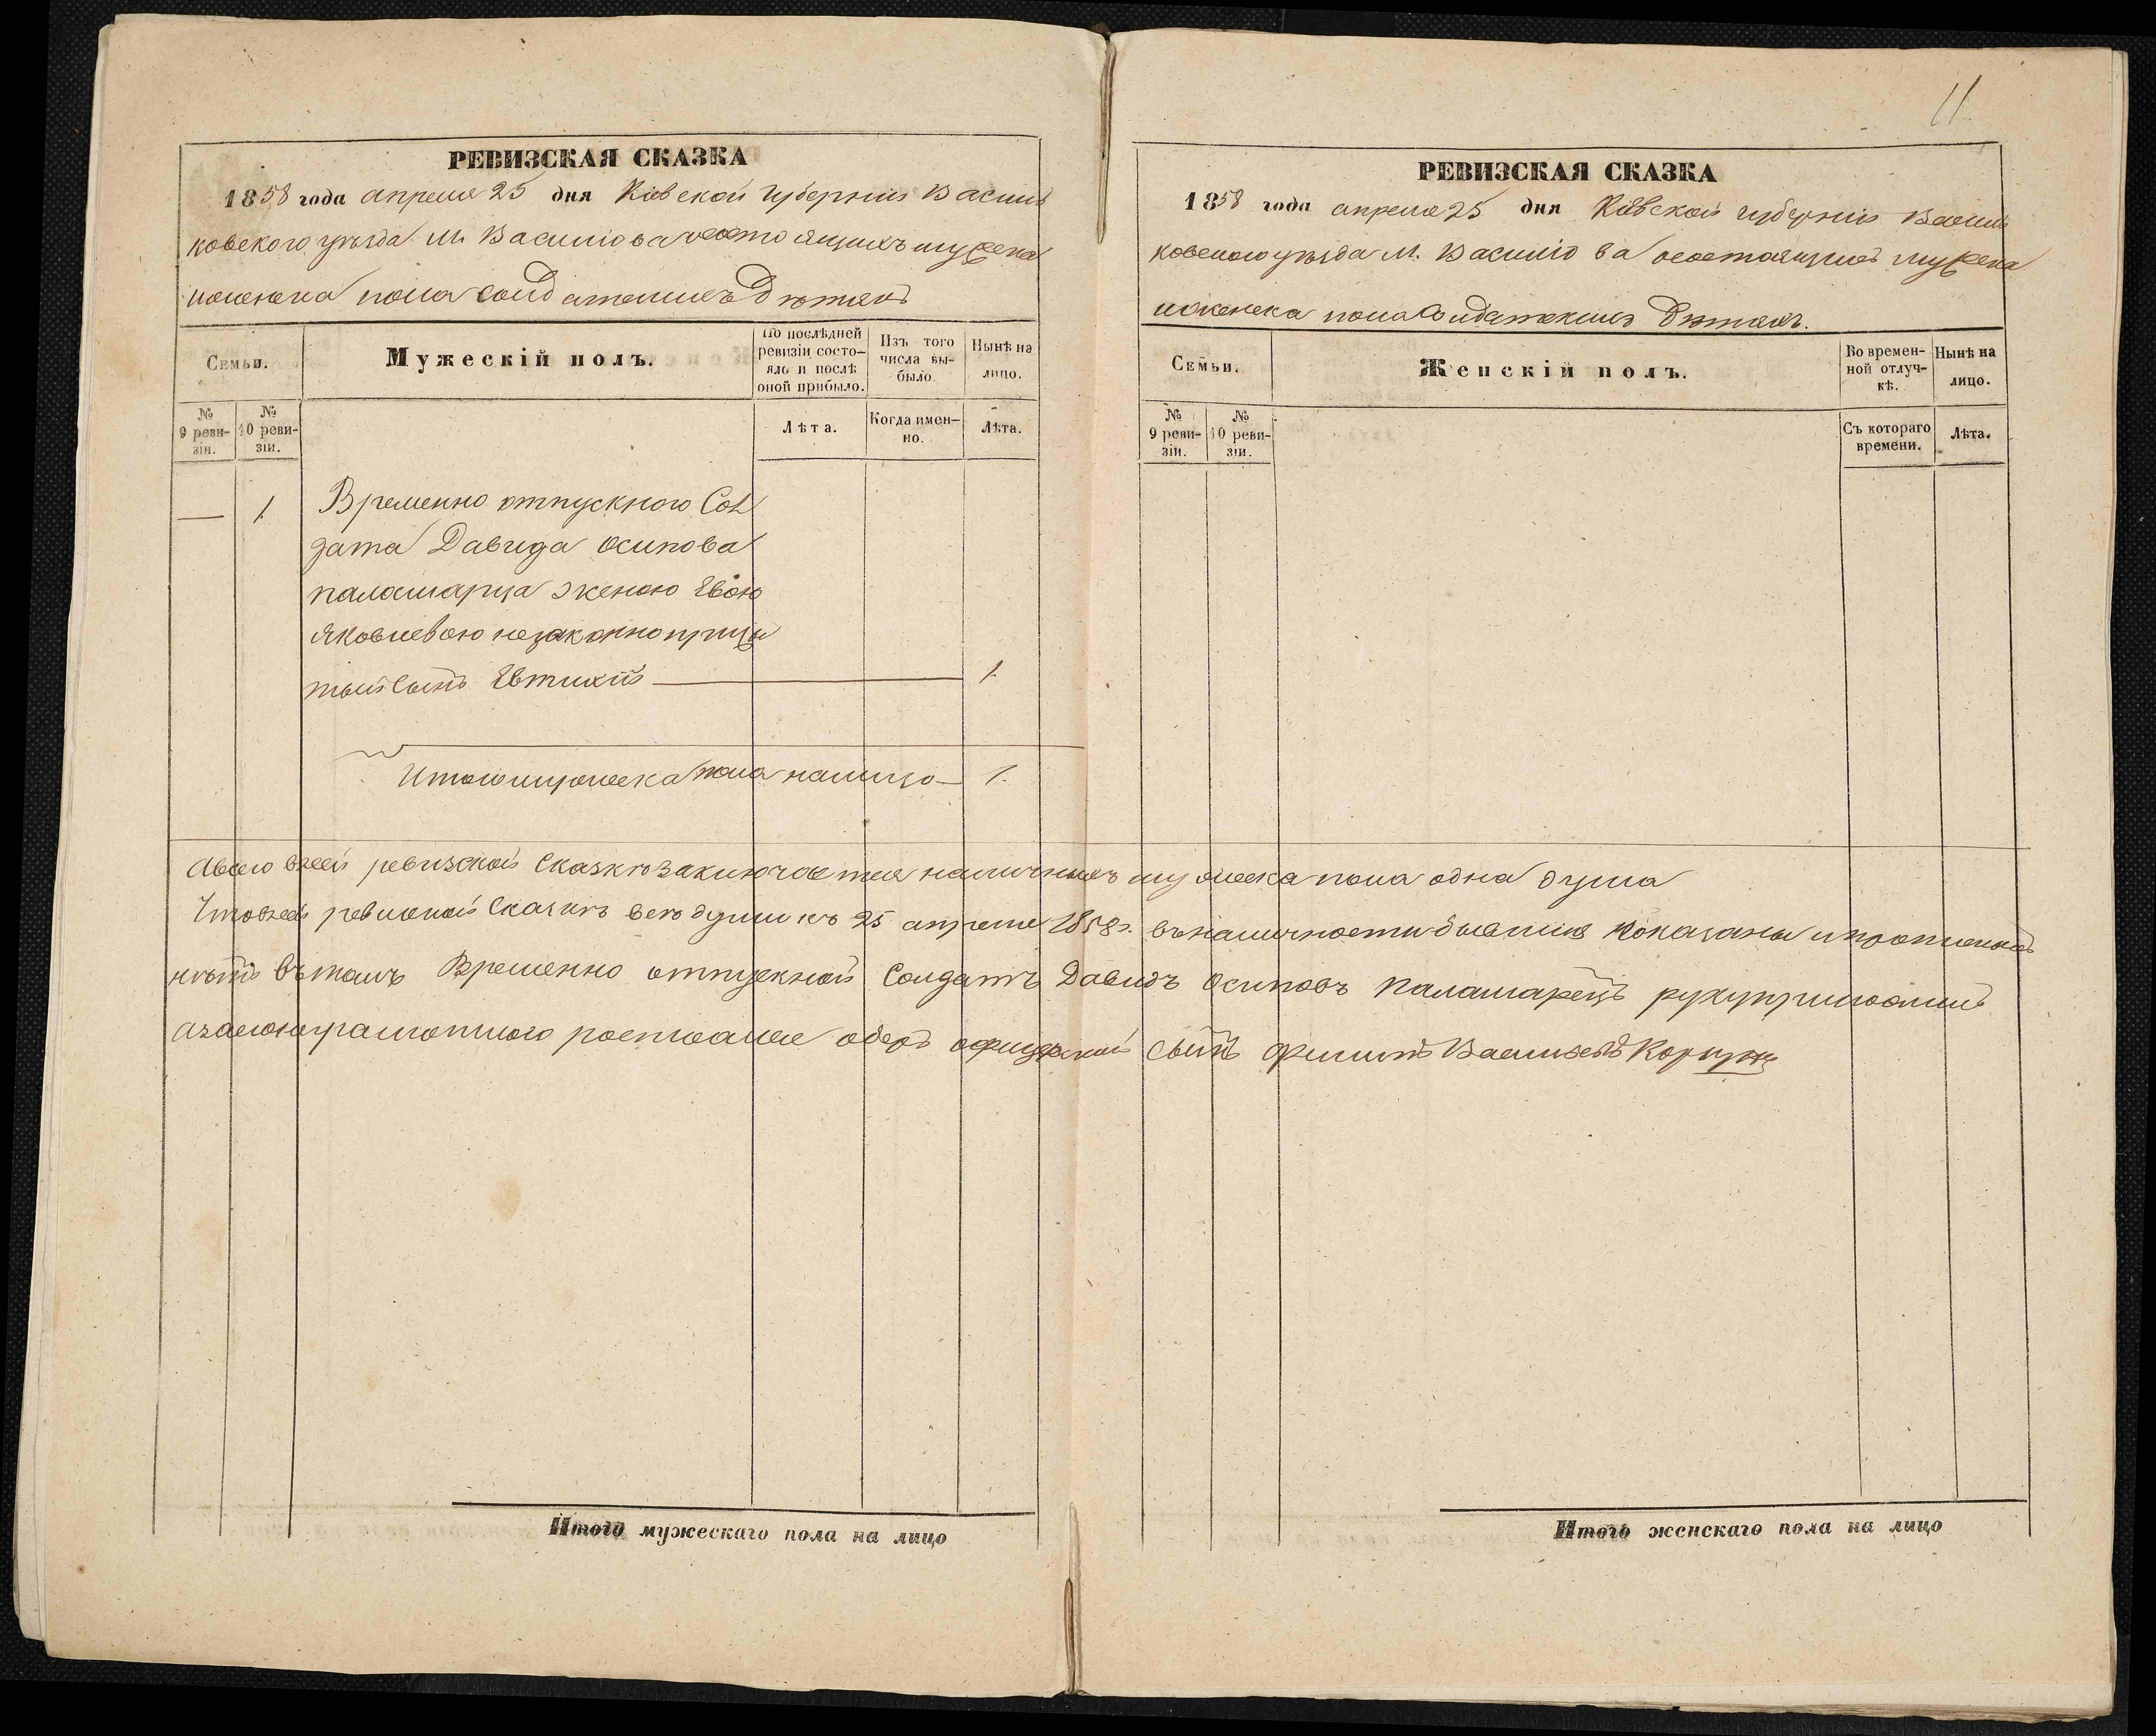 11
РЕВИЗСКАЯ СКАЗКА
1858 года апреля 25 дня Кіевской губерніи Василь
ковского уезда М. Василіова состоящихъ мужека
иженска пола солдатскихъ Детяхъ
Семьи.
Мужескій полъ.
По послѣдней ревизіи состо-
яло и послѣ оной прибыло.
Изъ того числа вы-
было.
Нынѣ на лицо.
№ 9 реви-
зіи.
№ 10 реви-
зіи.
Лѣта.
Когда имен-
но.
Лѣта.
— 1 Временно отпускного Сол
дата Давида Осипова
паламарца женою Евою
Яковлевою незаконноприжи
тый сынъ Евтихій — 1
Итого мужеска пола налицо — 1.
РЕВИЗСКАЯ СКАЗКА
1858 года апреля 25 дня Кіевской губерніи Василь
ковского уезда М. Василіова состоящихъ мужека
иженска пола Солдатскихъ Детяхъ.
Семьи.
Женскій полъ.
Во времен-
ной отлуч-
кѣ.
Нынѣ на лицо.
№ 9 реви-
зіи.
№ 10 реви-
зіи.
Съ котораго времени.
Лѣта.
Авсего всей ревизской Сказке Заключается наличныхъ мужеска пола одна душа
Чтовсей ревизской Сказкъ всего души къ 25 апреля 1858 г. въналичности бывшія показаны и
нетъ вътомъ Временно отпускной Солдатъ Давидъ Осиповъ Паламарецъ руку приложилъ
азанеграмотного росписался оберъ офицерской Сынъ Филипъ Васильевъ
Итого мужескаго пола на лицо
Итого женскаго пола на лицо